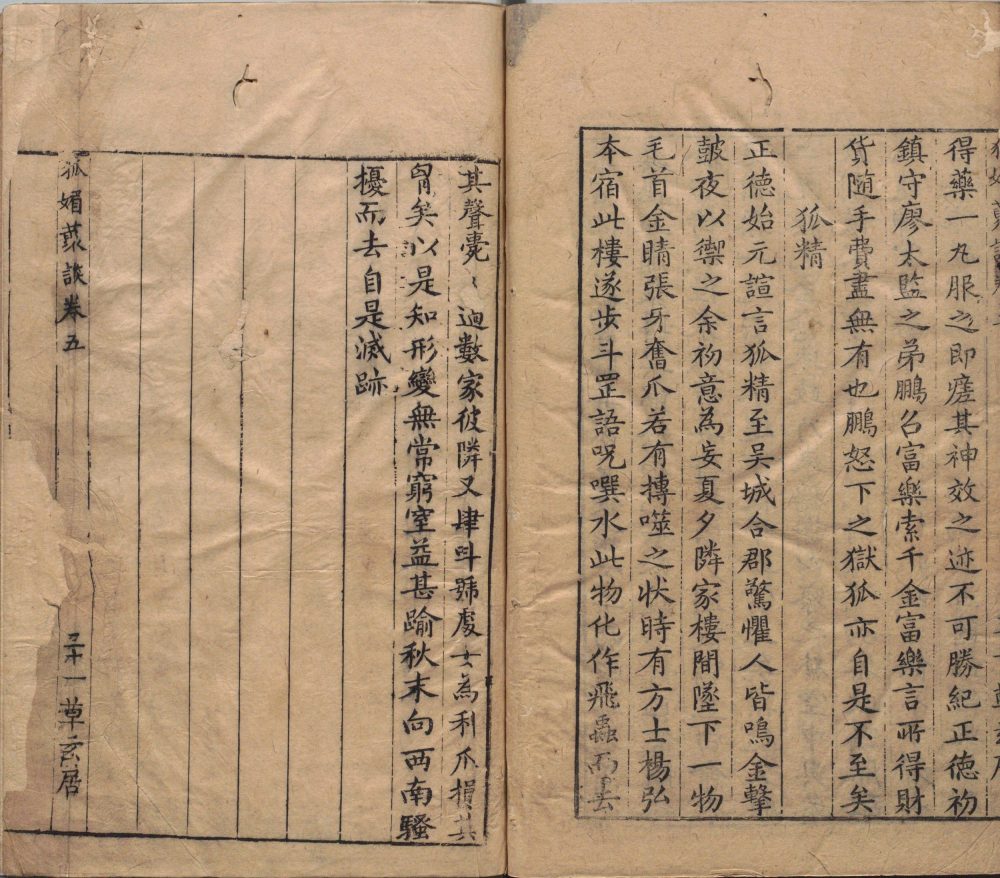 得藥一丸服之即瘥其神效之迹不可勝紀正德初
鎮守廖太監之弟鵬召富樂索千金富樂言所得財
貨隨手費盡無有也鵬怒下之獄狐亦自是不至矣
狐精
正德始元諠言狐精至吴城合郡驚懼人皆鳴金擊
皷夜以禦之余初意為妄夏夕隣家樓間墜下一物
毛首金睛張牙奮爪若有摶噬之状時有方士楊弘
本宿此樓遂步斗罡語呪噀水此物化作飛蟲而去
其聲薨〻迴數家彼隣又肆呌號處女為利爪損其
胷矣以是知形變無常窮室益甚踰秋末向西南騷
擾而去自是滅跡
狐媚叢談卷五
三十一草玄居